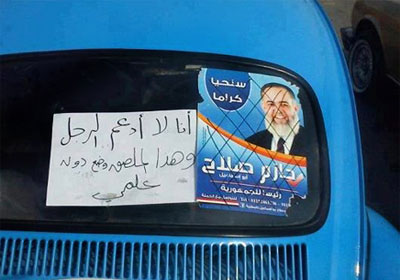 أنا لا أدعم الرجل
وهذا الملصق وضع دون
علمي
سنحيا
كراما
حازم صلاح
أبو إسماعيل
رئيساً للجمهورية